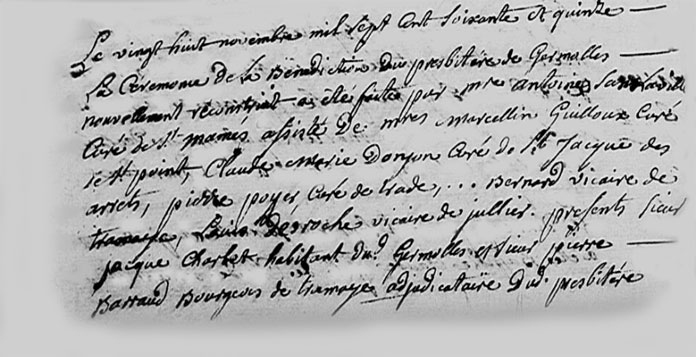 Le vingt huit novembre mil sept cent soixante et quinze —
La Ceremonie de la Benediction du presbitère de Germolles —
nouvellement recontruit a été faitte par mre antoine
Curé de st mamés assisté de mres marcellin Guilloux Curé
de st point, Claude Marie Donjon Curé de st Jacque des
arrets, pierre poyer, Curé de trade, ... Bernard vicaire de
tramaye, Louis Desroche vicaire de jullier. presents sieur
jacque Charlet habitant dud. Germolles et sieur pierre —
Barraud Bourgeois de tramaye adjudicataire dud. presbitére